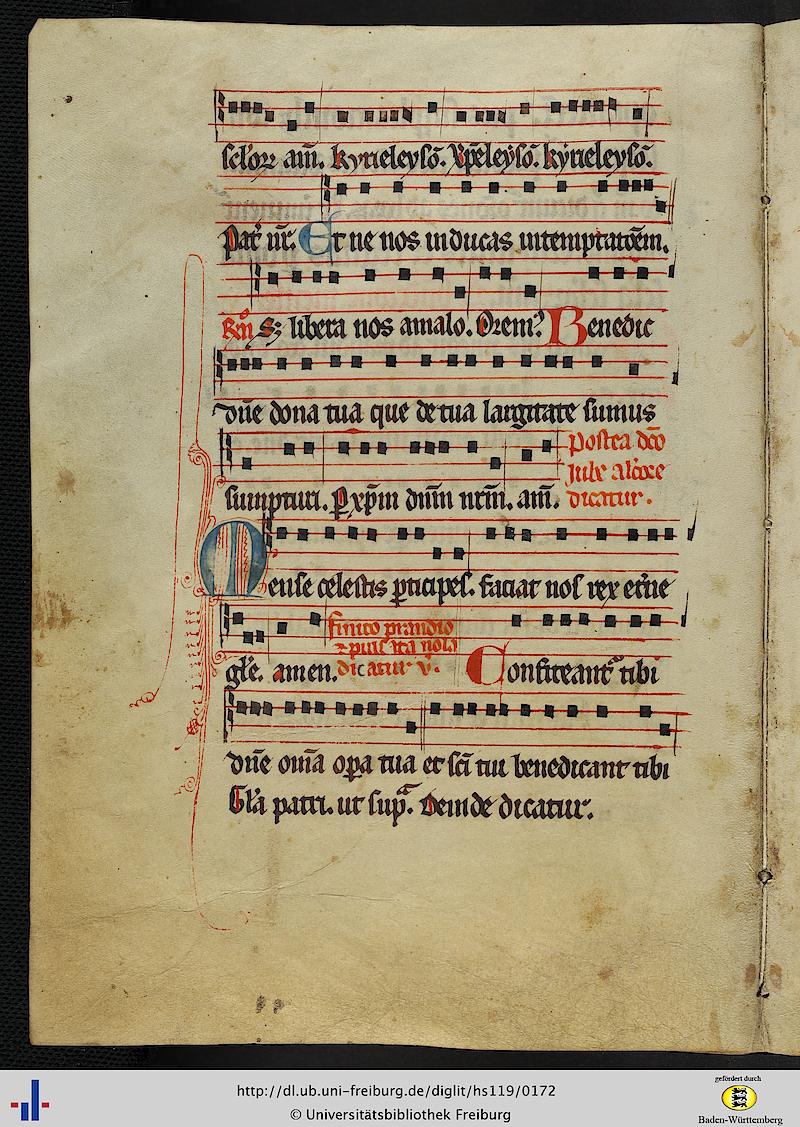 sclorꝝ am̄. kyrieleysō. xp̄eleysō. kyrieleysō.
Pat̄ nr̄. Et ne nos inducas intemptatōem.
Rm̄ Sꝫ libera nos amalo. Orem? Benedic
dn̄e dona tua que de tua largitate sumus
sumpturi. ꝑ xp̄m dn̄m nrm̄. am̄.
Postea dc̄o
Jube
dicatur.
Mense celestis ꝑticipes. faciat nos rex et̄ne
gl̄e. amen.
finito prandio
dicatur v̄.
Confiteant̄ tibi
dn̄e om̄ia oꝑa tua et sc̄i tui benedicant tibi
Gl̄a patri. ut sup̄a. Deinde dicatur.
http://dl.ub.uni-freiburg.de/diglit/hs119/0172
© Universitätsbibliothek Freiburg
gefördert durch
Baden-Württemberg